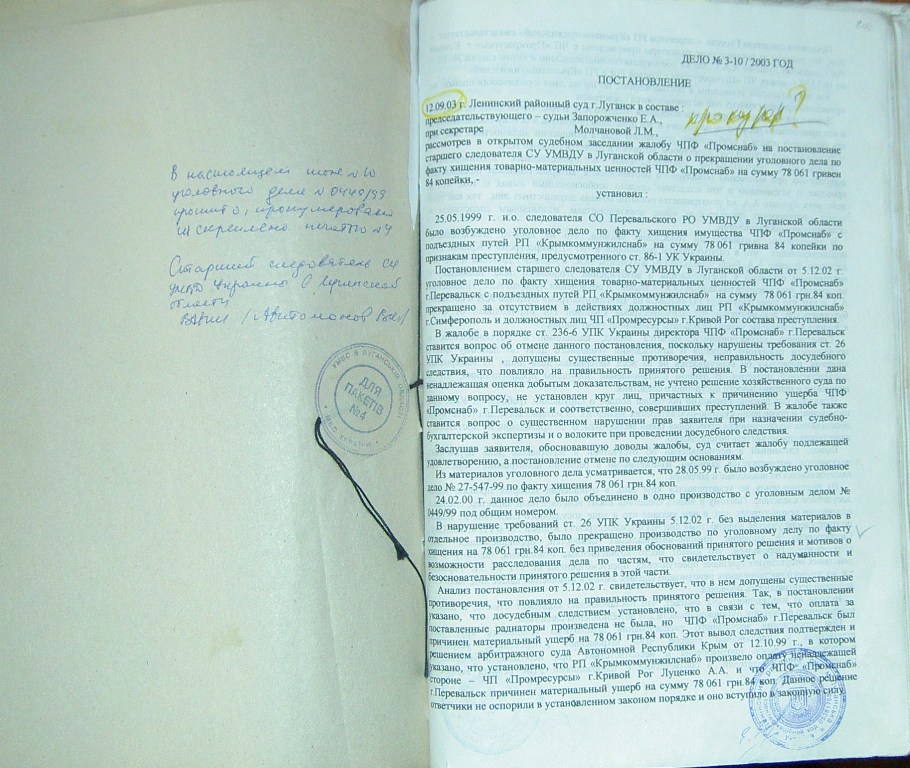 В настоящем томе №10
уголовного дела №0449/99
прошито, пронумеровано
и скреплено печатью №4
Старший следователь СУ
УМВД Украины в Луганской
области
/ Автономов
УМВС В ЛУГАНСЬКІЙ ОБЛАСТІ
ДЛЯ
ПАКЕТІВ
№4
МВС УКРАЇНИ
ДЕЛО № 3-10 / 2003 ГОД
ПОСТАНОВЛЕНИЕ
12.09.03 г. Ленинский районный суд г.Луганск в составе :
председательствующего – судьи Запорожченко Е.А.,
прокурор?
при секретаре Молчановой Л.М.,
рассмотрев в открытом судебном заседании жалобу ЧПФ «Промснаб» на постановление
старшего следователя СУ УМВДУ в Луганской области о прекращении уголовного дела по
факту хищения товарно-материальных ценностей ЧПФ «Промснаб» на сумму 78 061 гривен
84 копейки, -
установил :
25.05.1999 г. и.о. следователя СО Перевальского РО УМВДУ в Луганской области
было возбуждено уголовное дело по факту хищения имущества ЧПФ «Промснаб» с
подъездных путей РП «Крымкоммунжилснаб» на сумму 78 061 гривна 84 копейки по
признакам преступления, предусмотренного ст. 86-1 УК Украины.
Постановлением старшего следователя СУ УМВДУ в Луганской области от 5.12.02 г.
уголовное дело по факту хищения товарно-материальных ценностей ЧПФ «Промснаб»
г.Перевальск с подъездных путей РП «Крымкоммунжилснаб» на сумму 78 061 грн.84 коп.
прекращено за отсутствием в действиях должностных лиц РП «Крымкоммунжилснаб»
г.Симферополь и должностных лиц ЧП «Промресурсы» г.Кривой Рог состава преступления.
В жалобе в порядке ст. 236-6 УПК Украины директора ЧПФ «Промснаб» г.Перевальск
ставится вопрос об отмене данного постановления, поскольку нарушены требования ст. 26
УПК Украины , допущены существенные противоречия, неправильность досудебного
следствия, что повлияло на правильность принятого решения. В постановлении дана
ненадлежащая оценка добытым доказательствам, не учтено решение хозяйственного суда по
данному вопросу, не установлен круг лиц, причастных к причинению ущерба ЧПФ
«Промснаб» г.Перевальск и соответственно, совершивших преступлений. В жалобе также
ставится вопрос о существенном нарушении прав заявителя при назначении судебно-
бухгалтерской экспертизы и о волоките при проведении досудебного следствия.
Заслушав заявителя, обосновавшую доводы жалобы, суд считает жалобу подлежащей
удовлетворению, а постановление отмене по следующим основаниям.
Из материалов уголовного дела усматривается, что 28.05.99 г. было возбуждено уголовное
дело № 27-547-99 по факту хищения 78 061 грн.84 коп.
24.02.00 г. данное дело было объединено в одно производство с уголовным делом №
0449/99 под общим номером.
В нарушение требований ст. 26 УПК Украины 5.12.02 г. без выделения материалов в
отдельное производство, было прекращено производство по уголовному делу по факту
хищения на 78 061 грн.84 коп. без приведения обоснований принятого решения и мотивов о
возможности расследования дела по частям, что свидетельствует о надуманности и
безосновательности принятого решения в этой части.
Анализ постановления от 5.12.02 г. свидетельствует, что в нем допущены существенные
противоречия, что повлияло на правильность принятого решения. Так, в постановлении
указано, что досудебным следствием установлено, что в связи с тем, что оплата за
поставленные радиаторы произведена не была, но ЧПФ «Промснаб» г.Перевальск был
причинен материальный ущерб на 78 061 грн.84 коп. Этот вывод следствия подтвержден и
решением арбитражного суда Автономной Республики Крым от 12.10.99 г., в котором
указано, что установлено, что РП «Крымкоммунжилснаб» произвело оплату ненадлежащей
стороне – ЧП «Промресурсы» г.Кривой Рог Луценко А.А. и что ЧПФ «Промснаб»
г.Перевальск причинен материальный ущерб на сумму 78 061 грн.84 коп. Данное решение
ответчики не оспорили в установленном законом порядке и оно вступило в законную силу.